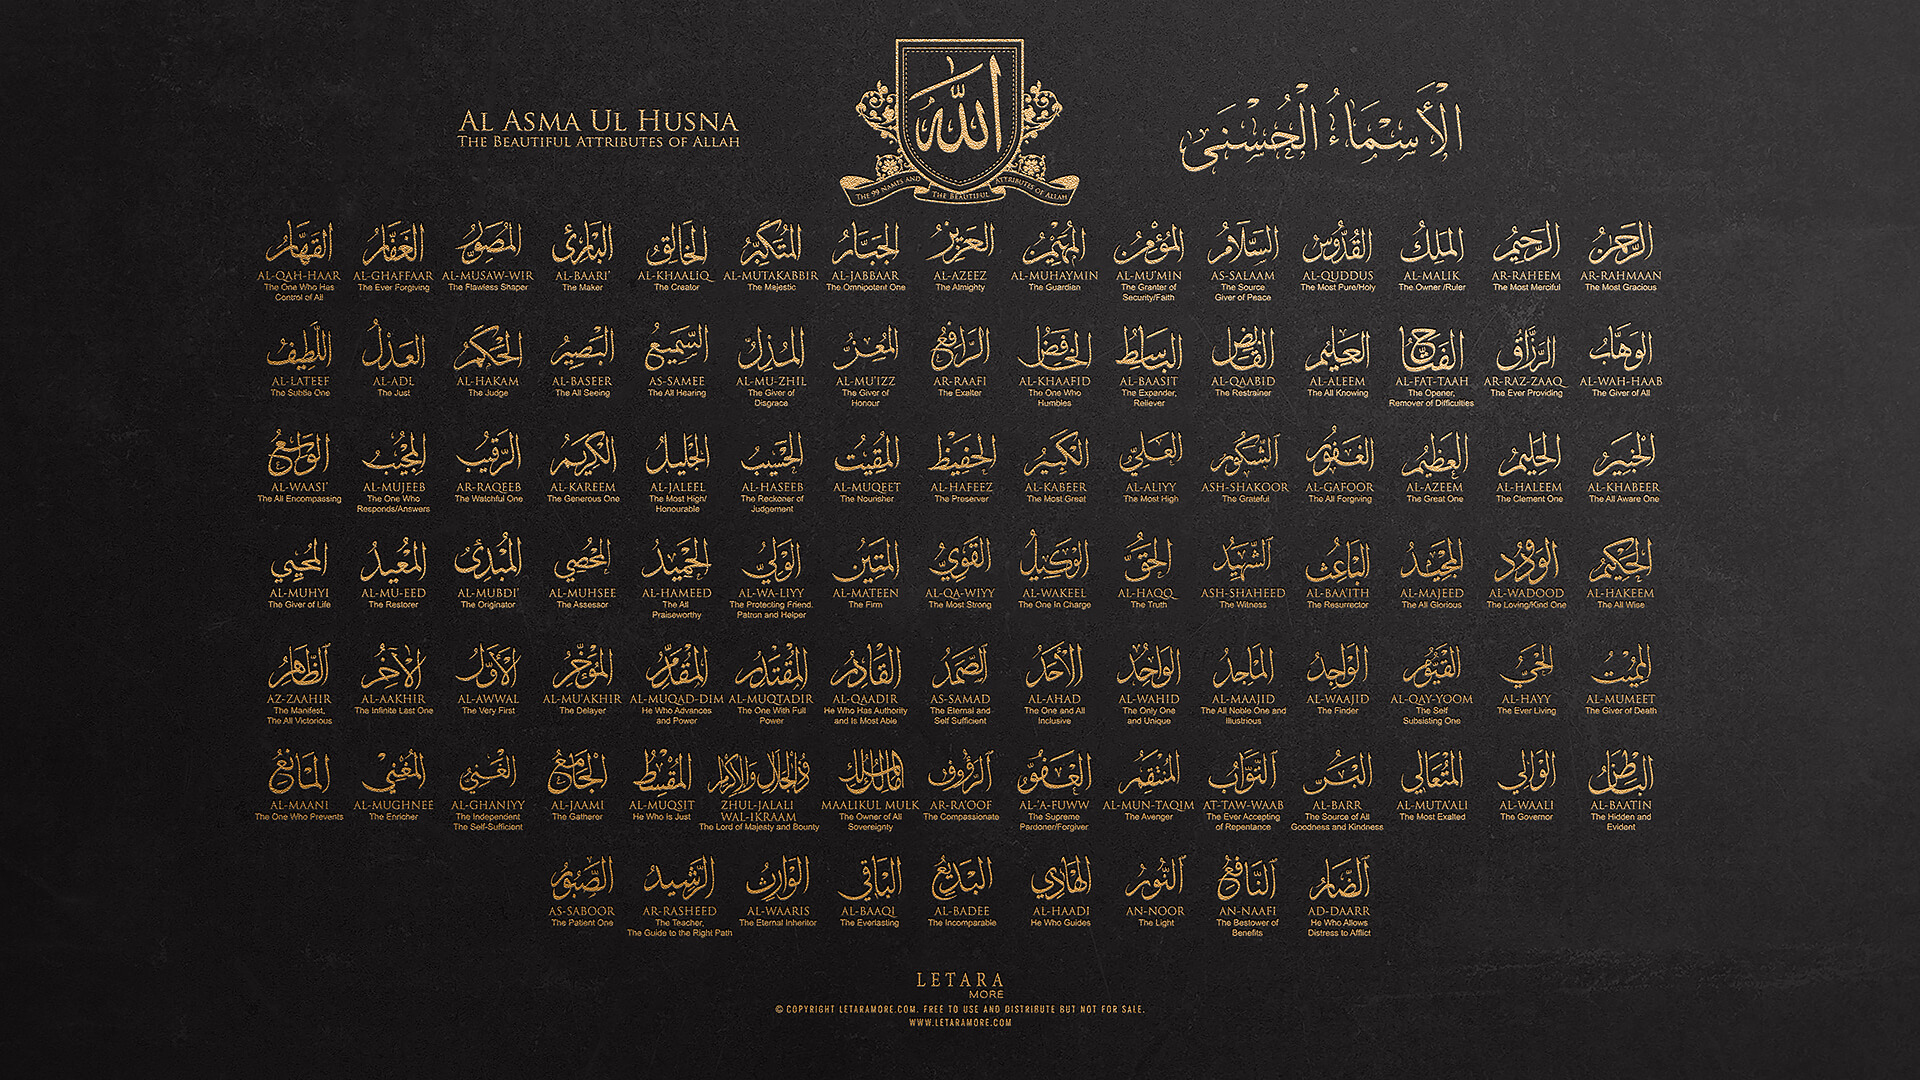 AL ASMA UL HUSNA
THE BEAUTIFUL ATTRIBUTES OF ALLAH
الله
THE 99 NAMES AND THE BEAUTIFUL ATTRIBUTES OF ALLAH
الْأَسْمَاءُ الْحُسْنَى
الرحمن
AR-RAHMAAN
The Most Gracious
الرحيم
AR-RAHEEM
The Most Merciful
الملك
AL-MALIK
The Owner /Ruler
القدوس
AL-QUDDUS
The Most Pure/Holy
السلام
AS-SALAAM
The Source
Giver of Peace
المؤمن
AL-MU'MIN
The Granter of
Security/Faith
المهيمن
AL-MUHAYMIN
The Guardian
العزيز
AL-AZEEZ
The Almighty
الجبار
AL-JABBAAR
The Omnipotent One
المتكبر
AL-MUTAKABBIR
The Majestic
الخالق
AL-KHAALIQ
The Creator
البارئ
AL-BAARI'
The Maker
المصور
AL-MUSAW-WIR
The Flawless Shaper
الغفار
AL-GHAFFAAR
The Ever Forgiving
القهار
AL-QAH-HAAR
The One Who Has
Control of All
الوهاب
AL-WAH-HAAB
The Giver of All
الرزاق
AR-RAZ-ZAAQ
The Ever Providing
الفتاح
AL-FAT-TAAH
The Opener,
Remover of Difficulties
العليم
AL-ALEEM
The All Knowing
القابض
AL-QAABID
The Restrainer
الباسط
AL-BAASIT
The Expander,
Reliever
الخافض
AL-KHAAFID
The One Who
Humbles
الرافع
AR-RAAFI
The Exalter
المعز
AL-MU'IZZ
The Giver of
Honour
المذل
AL-MU-ZHIL
The Giver of
Disgrace
السميع
AS-SAMEE
The All Hearing
البصير
AL-BASEER
The All Seeing
الحكم
AL-HAKAM
The Judge
العدل
AL-ADL
The Just
اللطيف
AL-LATEEF
The Subtle One
الخبير
AL-KHABEER
The All Aware One
الحليم
AL-HALEEM
The Clement One
العظيم
AL-AZEEM
The Great One
الغفور
AL-GAFOOR
The All Forgiving
الشكور
ASH-SHAKOOR
The Grateful
العلي
AL-ALIYY
The Most High
الكبير
AL-KABEER
The Most Great
الحفيظ
AL-HAFEEZ
The Preserver
المقيت
AL-MUQEET
The Nourisher
الحسيب
AL-HASEEB
The Reckoner of
Judgement
الجليل
AL-JALEEL
The Most High/
Honourable
الكريم
AL-KAREEM
The Generous One
الرقيب
AR-RAQEEB
The Watchful One
المجيب
AL-MUJEEB
The One Who
Responds/Answers
الواسع
AL-WAASI'
The All Encompassing
الحكيم
AL-HAKEEM
The All Wise
الودود
AL-WADOOD
The Loving/Kind One
المجيد
AL-MAJEED
The All Glorious
الباعث
AL-BAA'ITH
The Resurrector
الشهيد
ASH-SHAHEED
The Witness
الحق
AL-HAQQ
The Truth
الوكيل
AL-WAKEEL
The One In Charge
القوي
AL-QA-WIYY
The Most Strong
المتين
AL-MATEEN
The Firm
الولي
AL-WA-LIYY
The Protecting Friend.
Patron and Helper
الحميد
AL-HAMEED
The All
Praiseworthy
المحصي
AL-MUHSEE
The Assessor
المبدئ
AL-MUBDI'
The Originator
المعيد
AL-MU-EED
The Restorer
المحيي
AL-MUHYI
The Giver of Life
المميت
AL-MUMEET
The Giver of Death
الحي
AL-HAYY
The Ever Living
القيوم
AL-QAY-YOOM
The Self
Subsisting One
الواجد
AL-WAAJID
The Finder
الماجد
AL-MAAJID
The All Noble One and
Illustrious
الواحد
AL-WAHID
The Only One
and Unique
الأحد
AL-AHAD
The One and All
Inclusive
الصمد
AS-SAMAD
The Eternal and
Self Sufficient
القادر
AL-QAADIR
He Who Has Authority
and Is Most Able
المقتدر
AL-MUQTADIR
The One With Full
Power
المقدم
AL-MUQAD-DIM
He Who Advances
and Power
المؤخر
AL-MU'AKHIR
The Delayer
الأول
AL-AWWAL
The Very First
الآخر
AL-AAKHIR
The Infinite Last One
الظاهر
AZ-ZAAHIR
The Manifest,
The All Victorious
الباطن
AL-BAATIN
The Hidden and
Evident
الوالي
AL-WAALI
The Governor
المتعالي
AL-MUTA'ALI
The Most Exalted
البر
AL-BARR
The Source of All
Goodness and Kindness
التواب
AT-TAW-WAAB
The Ever Accepting
of Repentance
المنتقم
AL-MUN-TAQIM
The Avenger
العفو
AL-'A-FUWW
The Supreme
Pardoner/Forgiver
الرؤوف
AR-RA'OOF
The Compassionate
مالك الملك
MAALIKUL MULK
The Owner of All
Sovereignty
ذو الجلال والإكرام
ZHUL-JALALI
WAL-IKRAAM
The Lord of Majesty and Bounty
المقسط
AL-MUQSIT
He Who Is Just
الجامع
AL-JAAMI
The Gatherer
الغني
AL-GHANIYY
The Independent
The Self-Sufficient
المغني
AL-MUGHNEE
The Enricher
المانع
AL-MAANI
The One Who Prevents
الضار
AD-DAARR
He Who Allows
Distress to Afflict
النافع
AN-NAAFI
The Bestower of
Benefits
النور
AN-NOOR
The Light
الهادي
AL-HAADI
He Who Guides
البديع
AL-BADEE
The Incomparable
الباقي
AL-BAAQI
The Everlasting
الوارث
AL-WAARIS
The Eternal Inheritor
الرشيد
AR-RASHEED
The Teacher,
The Guide to the Right Path
الصبور
AS-SABOOR
The Patient One
LETARA
MORE
© COPYRIGHT LETARAMORE.COM. FREE TO USE AND DISTRIBUTE BUT NOT FOR SALE.
WWW.LETARAMORE.COM